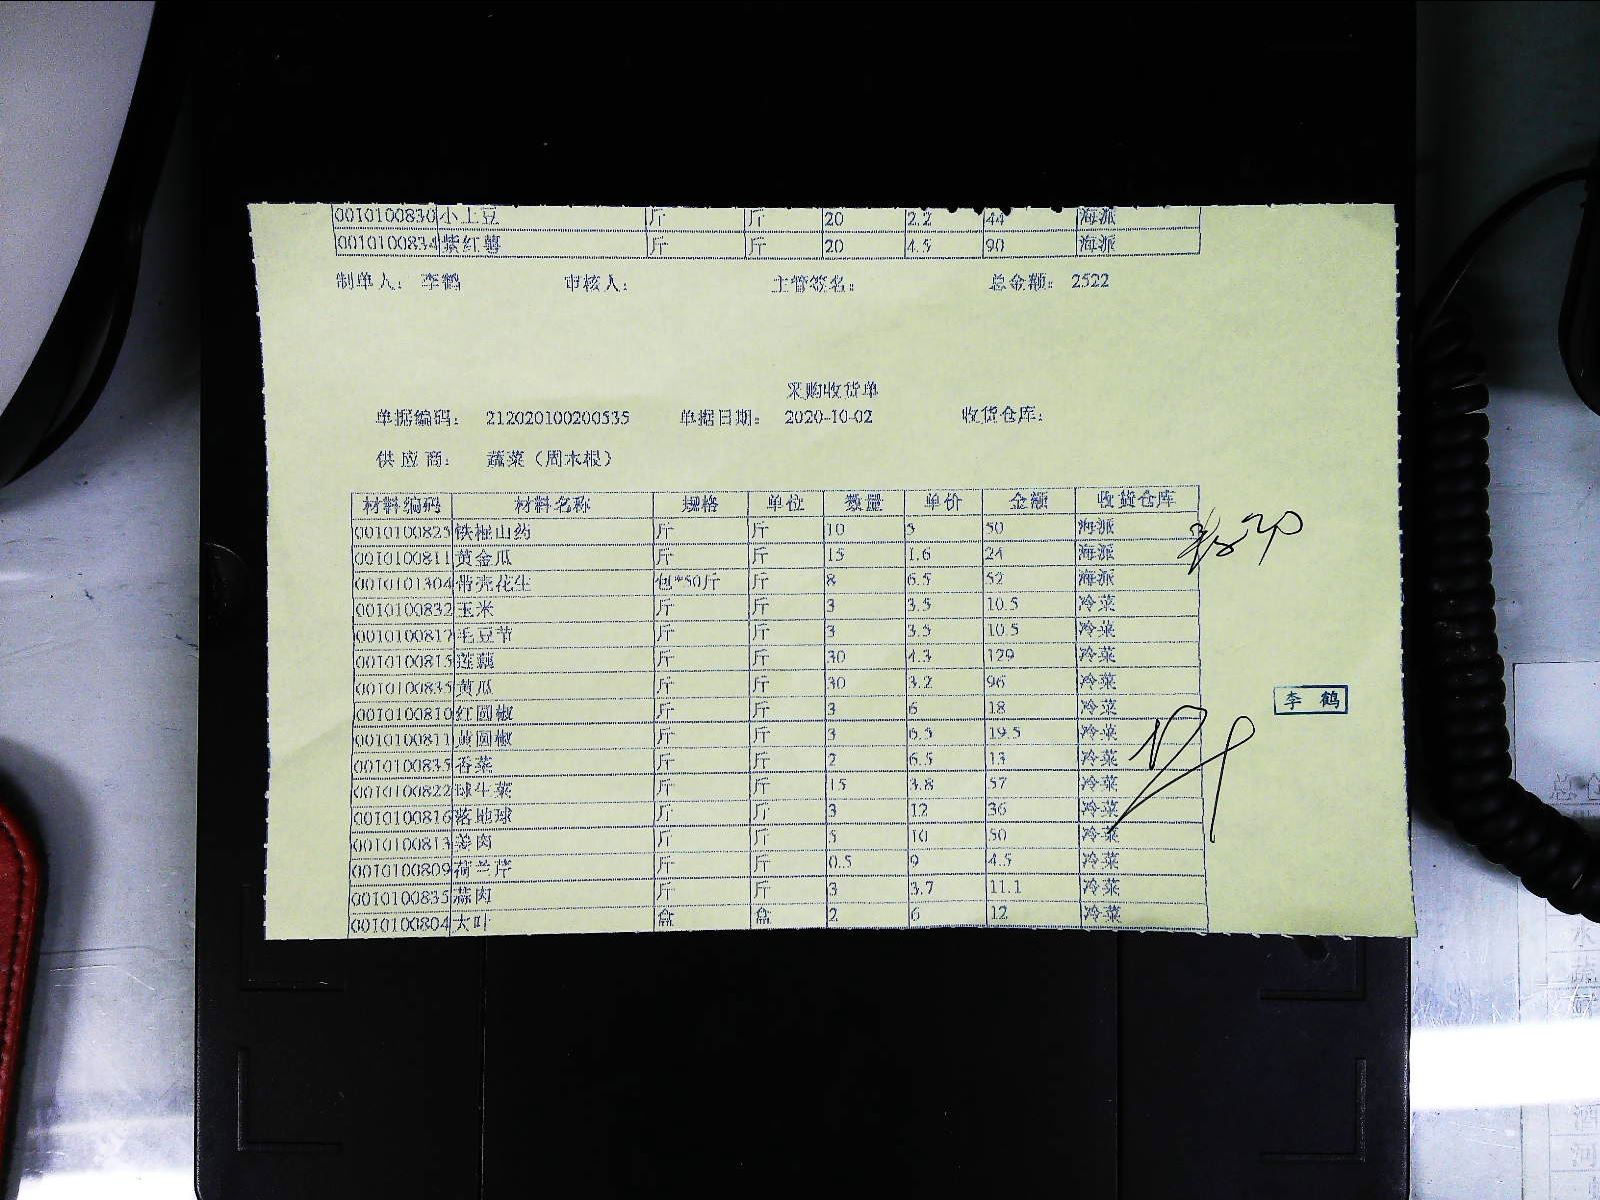 0010100830 小土豆 斤 斤 20 2.2 44 海派
0010100834 紫红薯 斤 斤 20 4.5 90 海派
制单人： 李鹤 审核人： 主管签名： 总金额： 2522
采购收货单
单据编码： 212020100200535 单据日期： 2020-10-02 收货仓库：
供应商： 蔬菜（周木根）
材料编码 材料名称 规格 单位 数量 单价 金额 收货仓库
0010100825 铁棍山药 斤 斤 10 5 50 海派
0010100811 黄金瓜 斤 斤 15 1.6 24 海派
0010101304 带壳花生 包*50斤 斤 8 6.5 52 海派
0010100832 玉米 斤 斤 3 3.5 10.5 冷菜
0010100817 毛豆节 斤 斤 3 3.5 10.5 冷菜
0010100815 莲藕 斤 斤 30 4.3 129 冷菜
0010100835 黄瓜 斤 斤 30 3.2 96 冷菜
李鹤
0010100810 红圆椒 斤 斤 3 6 18 冷菜
0010100811 黄圆椒 斤 斤 3 6.5 19.5 冷菜
0010100835 香菜 斤 斤 2 6.5 13 冷菜
0010100822 球生菜 斤 斤 15 3.8 57 冷菜
0010100816 落地球 斤 斤 3 12 36 冷菜
0010100813 姜肉 斤 斤 5 10 50 冷菜
0010100809 荷兰芹 斤 斤 0.5 9 4.5 冷菜
0010100835 蒜肉 斤 斤 3 3.7 11.1 冷菜
0010100804 大叶 盒 盒 2 6 12 冷菜